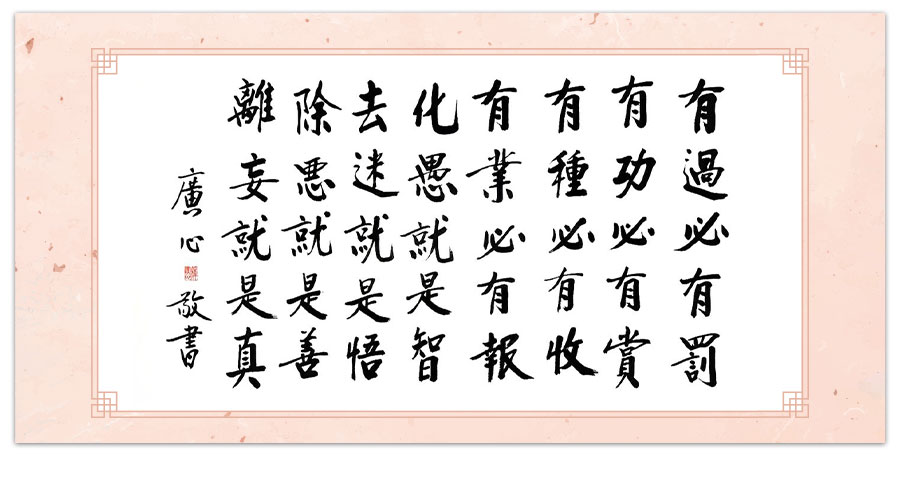 有過必有罰
有功必有賞
有種必有收
有業必有報
化愚就是智
去迷就是悟
除惡就是善
離妄就是真
廣心敬書